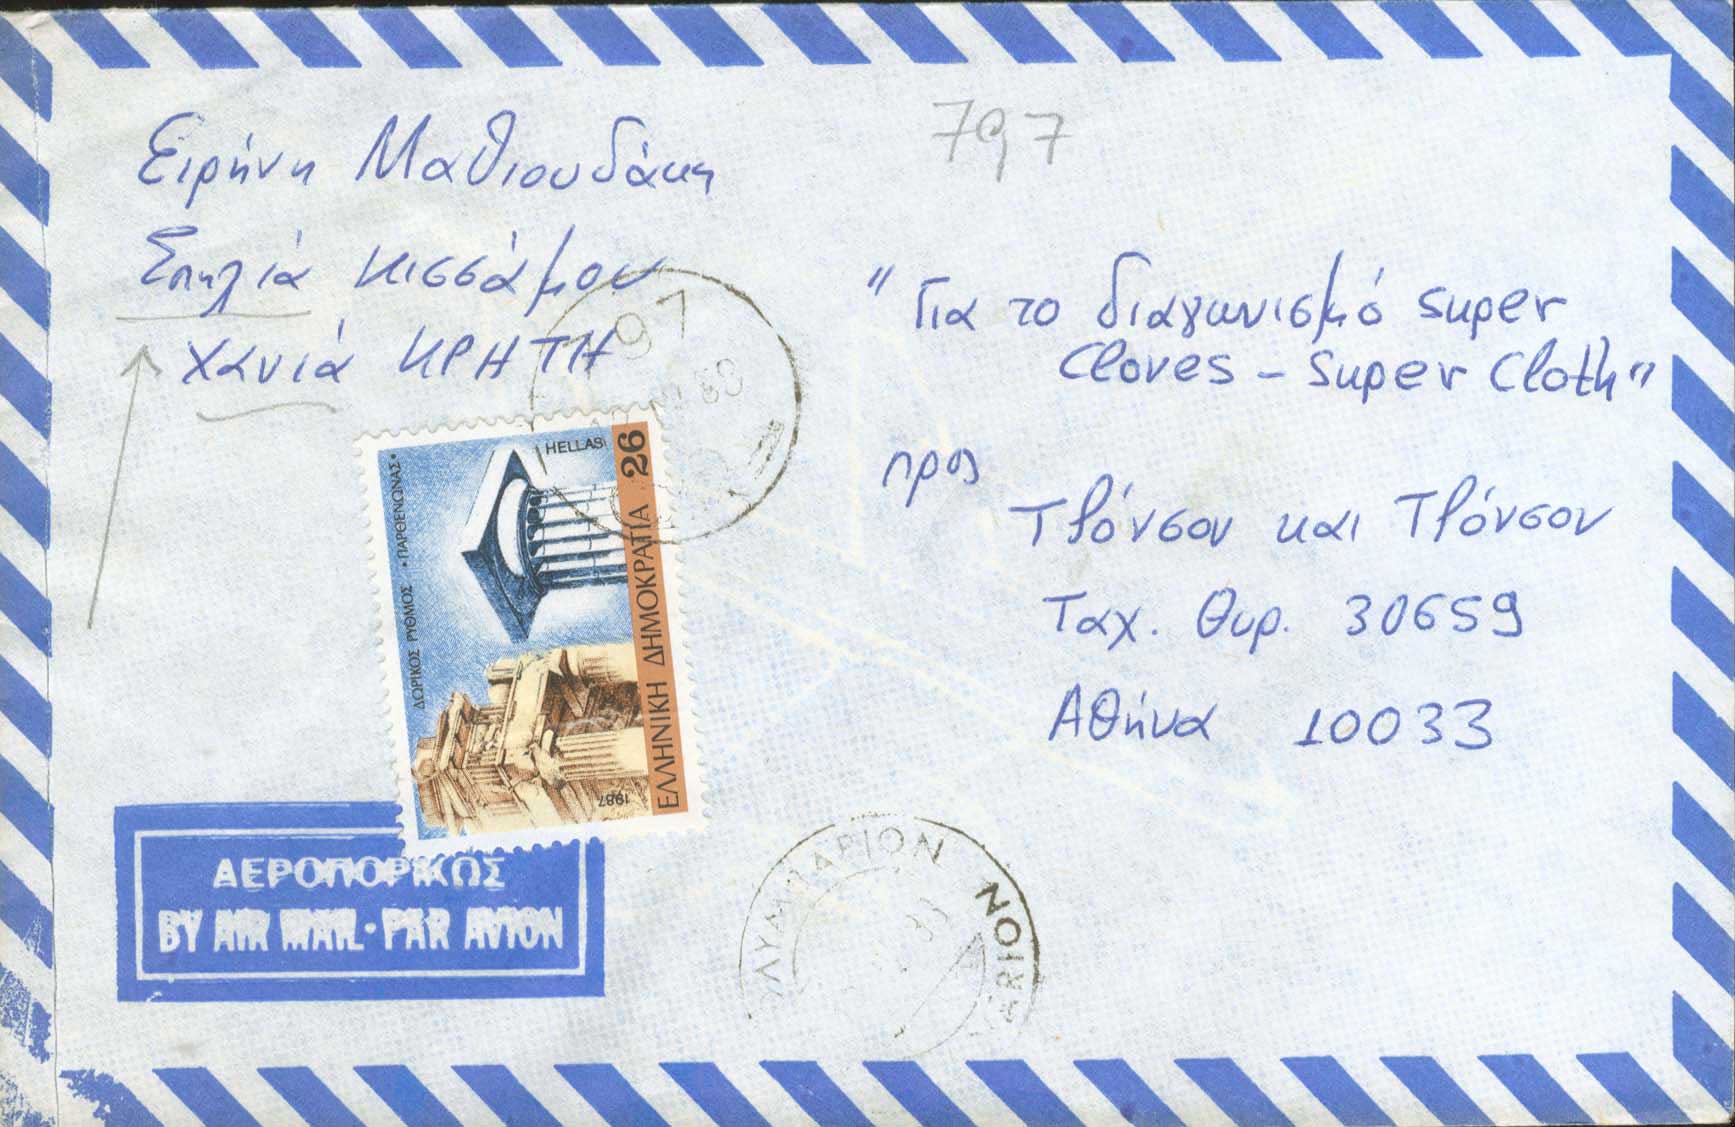 Ειρήνη Μαθιουδάκη
Σπηλιά Κισσάμου
Χανιά ΚΡΗΤΗ
797
" Για το διαγωνισμό super
Cloves - Super Cloth "
προς
Τζόνσον και Τζόνσον
Ταχ. Θυρ. 30659
Αθήνα 10033
797
HELLAS
26
ΕΛΛΗΝΙΚΗ ΔΗΜΟΚΡΑΤΙΑ
ΔΩΡΙΚΟΣ ΡΥΘΜΟΣ • ΠΑΡΘΕΝΩΝΑΣ •
1987
ΑΕΡΟΠΟΡΙΚΩΣ
BY AIR MAIL • PAR AVION